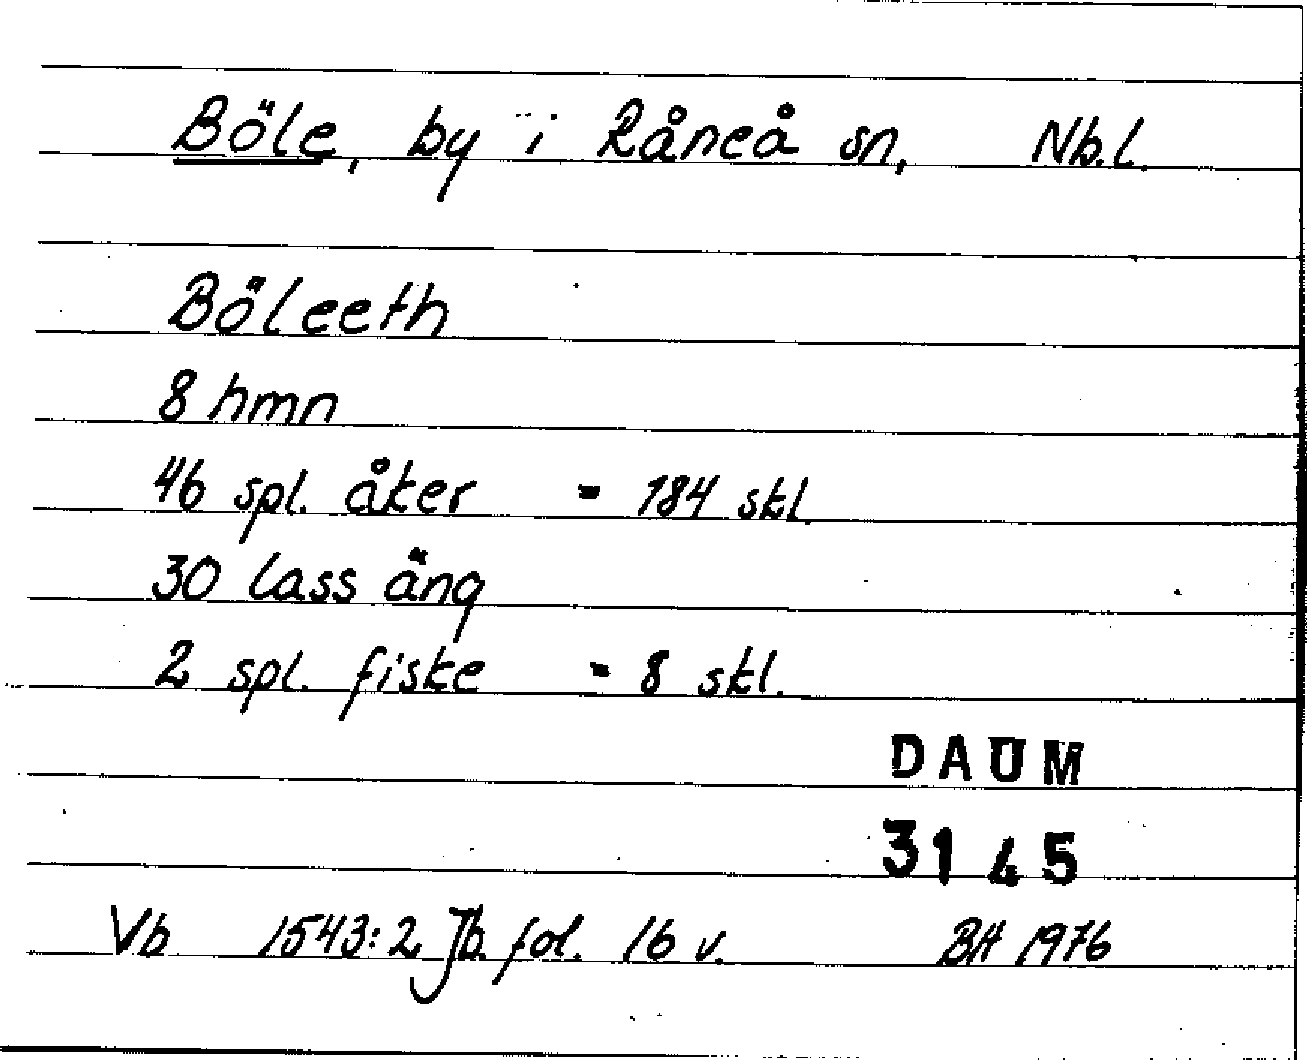 Böle, by i Råneå sn, Nb.l.
Böleeth
8 hmn
46 spl. åker = 184 skl
30 lass äng
2 spl. fiske = 8 skl.
DAUM
3145
Vb 1543:2 Jb. fol. 16 v. BH 1976